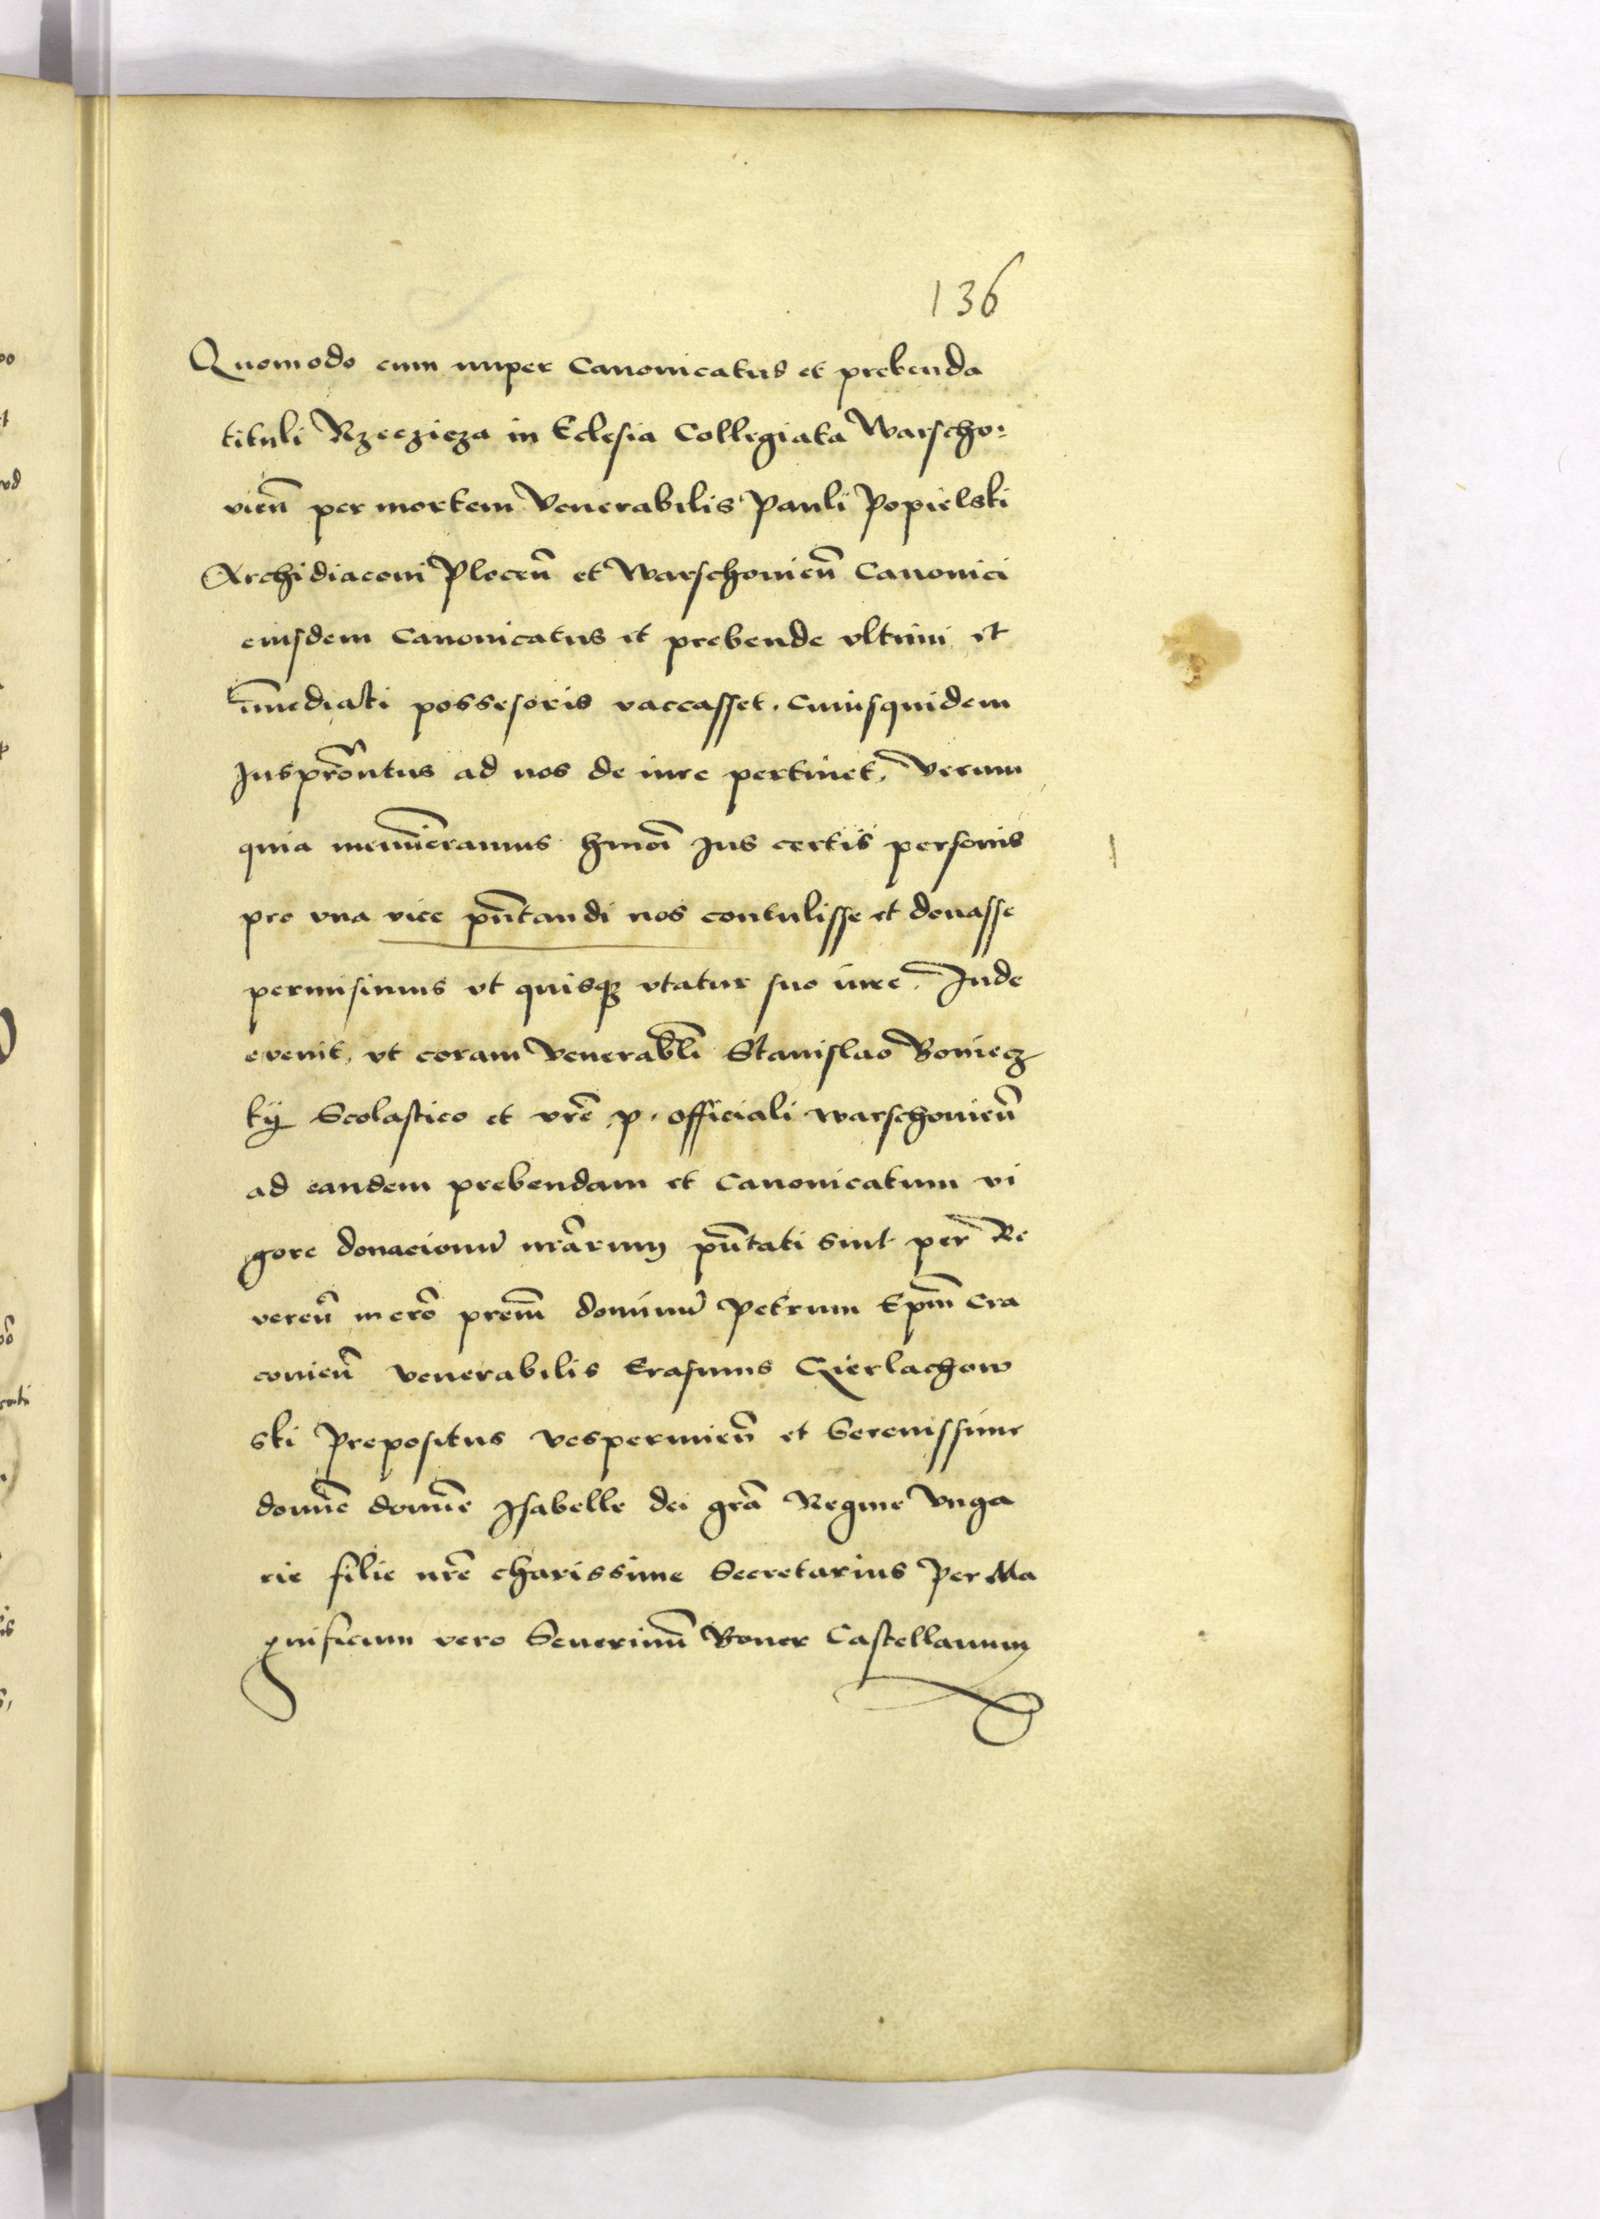 136
Quomodo cum nuper Canonicatus et prebenda
tituli Rzeczicza in Eclesia Collegiata Warscho:
vien̄ per mortem Venerabilis Pauli Popielski
Archidiaconi Plocen̄ et Warschouien̄ Canonici
eiusdem Canonicatus et prebende vltimi et
īmediati possesoris vaccasset. Cuiusquidem
Juspr̄ontus ad nos de iure pertinet, Verum
quia meminēramus hmōi Jus certis personis
pro vna vice pn̄tandi nos contulisse et donasse
permisimus vt quisqꝫ vtatur suo iure. Inde
evenit, vt coram Venerabl̄i Stanislao Boniecz
kÿ Scolastico et vr̄e p. officiali warschouien̄
ad eandem prebendam et Canonicatum vi
gore donacionū nr̄arum pn̄tati sint per Re
veren̄ in crō prem̄ dominū Petrum Epm̄ Cra
couien̄ Venerabilis Erasmus Gierlachow
ski Prepositus Vespermien̄ et Serenissime
domn̄e domn̄e Isabelle dei grā Regine Vnga
rie filie nr̄e charissime Secretarius Per Ma
gnificum vero Seuerinū Boner Castellanum